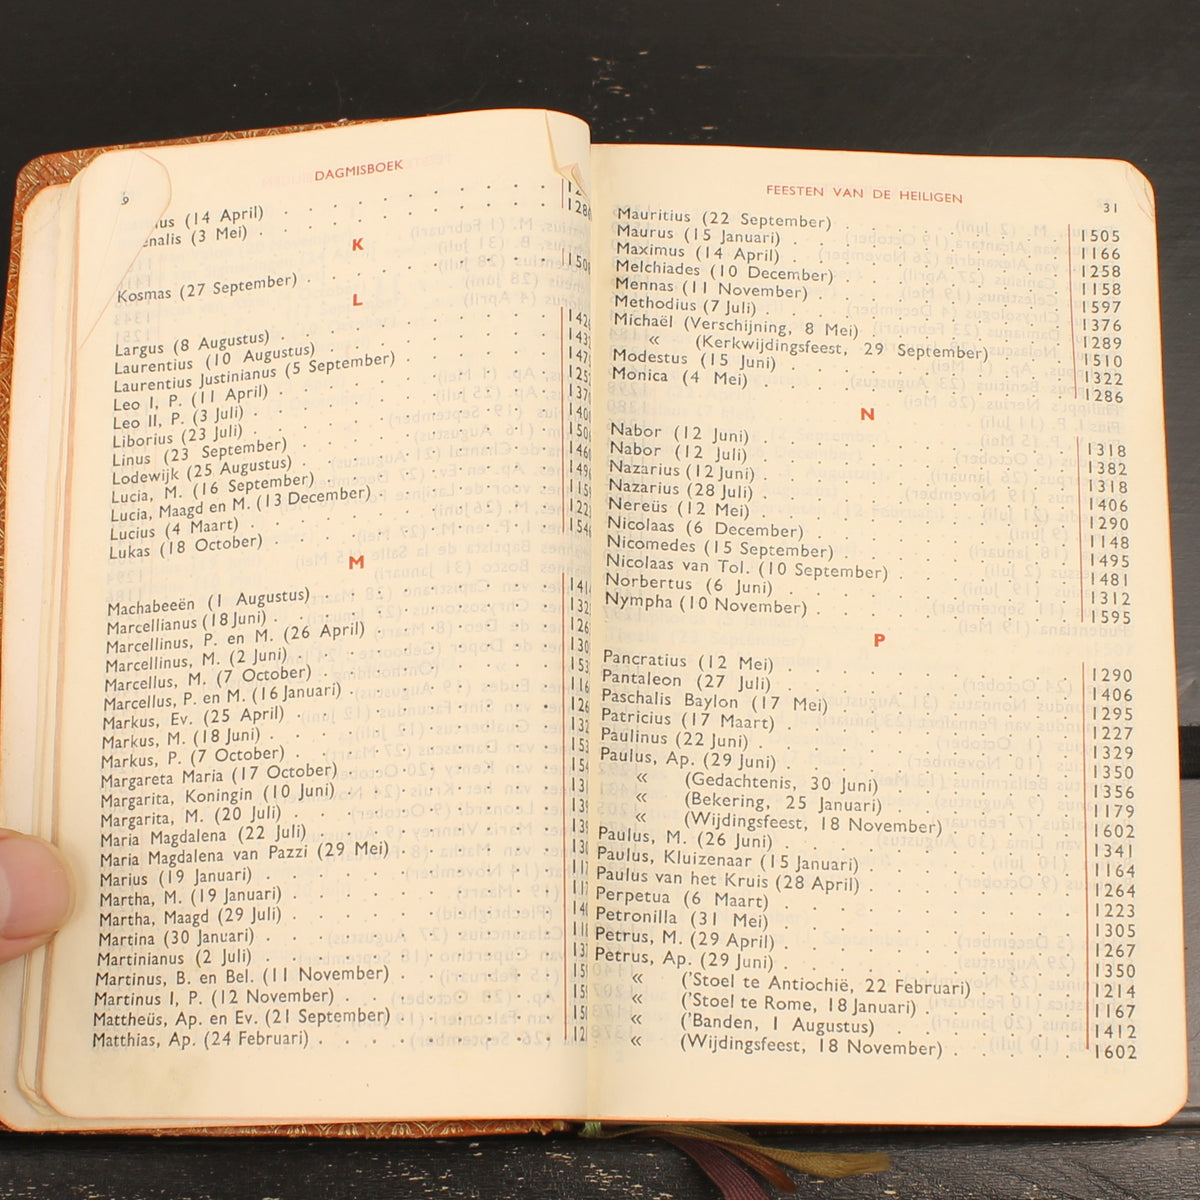 DAGMISBOEK
(14 April)
(3 Mei) 1280
K
Kosmas (27 September) 1508
L
Largus (8 Augustus)
Laurentius (10 Augustus)
Laurentius Justinianus (5 September)
Leo I, P. (11 April)
Leo II, P. (3 Juli)
Liborius (23 Juli)
Linus (23 September)
Lodewijk (25 Augustus)
Lucia, M. (16 September)
Lucia, Maagd en M. (13 December)
Lucius (4 Maart)
Lukas (18 October)
M
Machabeeën (1 Augustus)
Marcellianus (18 Juni)
Marcellinus, P. en M. (26 April)
Marcellinus, M. (2 Juni)
Marcellus, M. (7 October)
Marcellus, P. en M. (16 Januari)
Markus, Ev. (25 April)
Markus, M. (18 Juni)
Markus, P. (7 October)
Margareta Maria (17 October)
Margarita, Koningin (10 Juni)
Margarita, M. (20 Juli)
Maria Magdalena (22 Juli)
Maria Magdalena van Pazzi (29 Mei)
Marius (19 Januari)
Martha, M. (19 Januari)
Martha, Maagd (29 Juli)
Martina (30 Januari)
Martinianus (2 Juli)
Martinus, B. en Bel. (11 November)
Martinus I, P. (12 November)
Mattheüs, Ap. en Ev. (21 September)
Matthias, Ap. (24 Februari)
FEESTEN VAN DE HEILIGEN 31
Mauritius (22 September) 1505
Maurus (15 Januari) 1166
Maximus (14 April) 1258
Melchiades (10 December) 1158
Mennas (11 November) 1597
Methodius (7 Juli) 1376
Michaël (Verschijning, 8 Mei) 1289
« (Kerkwijdingsfeest, 29 September) 1510
Modestus (15 Juni) 1322
Monica (4 Mei) 1286
N
Nabor (12 Juni) 1318
Nabor (12 Juli) 1382
Nazarius (12 Juni) 1318
Nazarius (28 Juli) 1406
Nereüs (12 Mei) 1290
Nicolaas (6 December) 1148
Nicomedes (15 September) 1495
Nicolaas van Tol. (10 September) 1481
Norbertus (6 Juni) 1312
Nympha (10 November) 1595
P
Pancratius (12 Mei) 1290
Pantaleon (27 Juli) 1406
Paschalis Baylon (17 Mei) 1295
Patricius (17 Maart) 1227
Paulinus (22 Juni) 1329
Paulus, Ap. (29 Juni) 1350
« (Gedachtenis, 30 Juni) 1356
« (Bekering, 25 Januari) 1179
« (Wijdingsfeest, 18 November) 1602
Paulus, M. (26 Juni) 1341
Paulus, Kluizenaar (15 Januari) 1164
Paulus van het Kruis (28 April) 1264
Perpetua (6 Maart) 1223
Petronilla (31 Mei) 1305
Petrus, M. (29 April) 1267
Petrus, Ap. (29 Juni) 1350
« ('Stoel te Antiochië, 22 Februari) 1214
« ('Stoel te Rome, 18 Januari) 1167
« ('Banden, 1 Augustus) 1412
« (Wijdingsfeest, 18 November) 1602